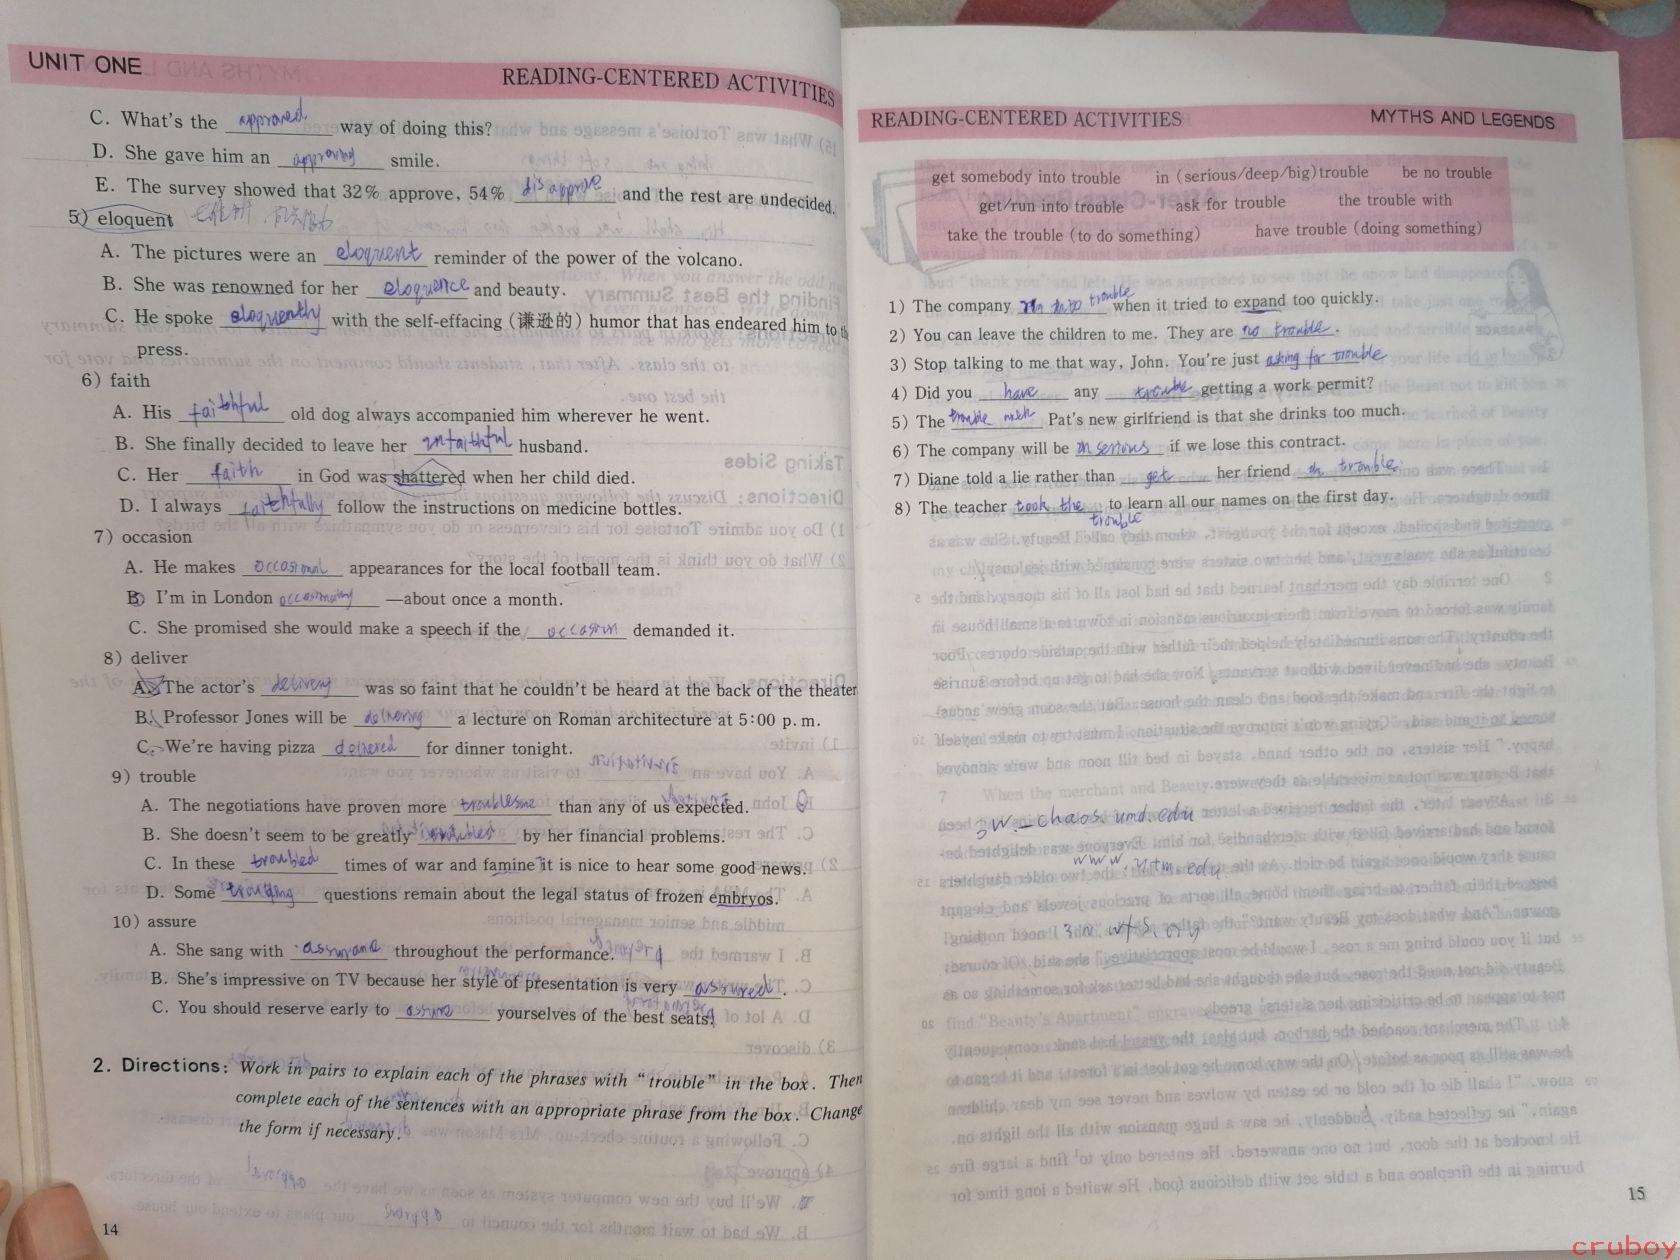 UNIT ONE
READING-CENTERED ACTIVITIES
C. What's the approved way of doing this?
D. She gave him an approving smile.
E. The survey showed that 32% approve, 54% disapprove and the rest are undecided.
5) eloquent
A. The pictures were an eloquent reminder of the power of the volcano.
B. She was renowned for her eloquence and beauty.
C. He spoke eloquently with the self-effacing (谦逊的) humor that has endeared him to
press.
6) faith
A. His faithful old dog always accompanied him wherever he went.
B. She finally decided to leave her unfaithful husband.
C. Her faith in God was shattered when her child died.
D. I always faithfully follow the instructions on medicine bottles.
7) occasion
A. He makes occasional appearances for the local football team.
B. I'm in London occasionally —about once a month.
C. She promised she would make a speech if the occasion demanded it.
8) deliver
A. The actor's delivery was so faint that he couldn't be heard at the back of the theater
B. Professor Jones will be delivering a lecture on Roman architecture at 5:00 p.m.
C. We're having pizza delivered for dinner tonight.
9) trouble
A. The negotiations have proven more troublesome than any of us expected.
B. She doesn't seem to be greatly troubled by her financial problems.
C. In these troubled times of war and famine it is nice to hear some good news.
D. Some troubling questions remain about the legal status of frozen embryos.
10) assure
A. She sang with assurance throughout the performance.
B. She's impressive on TV because her style of presentation is very assured.
C. You should reserve early to assure yourselves of the best seats.
2. Directions: Work in pairs to explain each of the phrases with "trouble" in the box. Then
complete each of the sentences with an appropriate phrase from the box. Change
the form if necessary.
14
READING-CENTERED ACTIVITIES
MYTHS AND LEGENDS
get somebody into trouble in (serious/deep/big) trouble be no trouble
get/run into trouble ask for trouble the trouble with
take the trouble (to do something) have trouble (doing something)
1) The company ran into trouble when it tried to expand too quickly.
2) You can leave the children to me. They are no trouble.
3) Stop talking to me that way, John. You're just asking for trouble
4) Did you have any trouble getting a work permit?
5) The trouble with Pat's new girlfriend is that she drinks too much.
6) The company will be in serious if we lose this contract.
7) Diane told a lie rather than get her friend in trouble.
8) The teacher took the trouble to learn all our names on the first day.
3W.-chaos.umd.edu
www.utm.edu
3w.wfs.org
15
cruboy